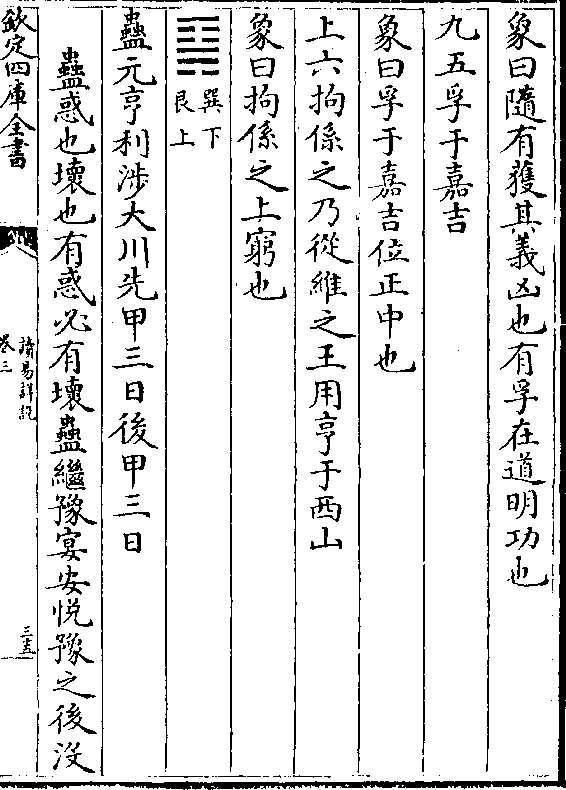 象曰隨有獲其義凶也有孚在道明功也
九五孚于嘉吉
象曰孚于嘉吉位正中也
上六拘係之乃從維之王用亨于西山
象曰拘係之上窮也
巽下
艮上
蠱元亨利涉大川先甲三日後甲三日
蠱惑也壞也有惑必有壞蠱繼豫宴安悅豫之後沒
欽定四庫全書
讀易詳說
卷三
三五